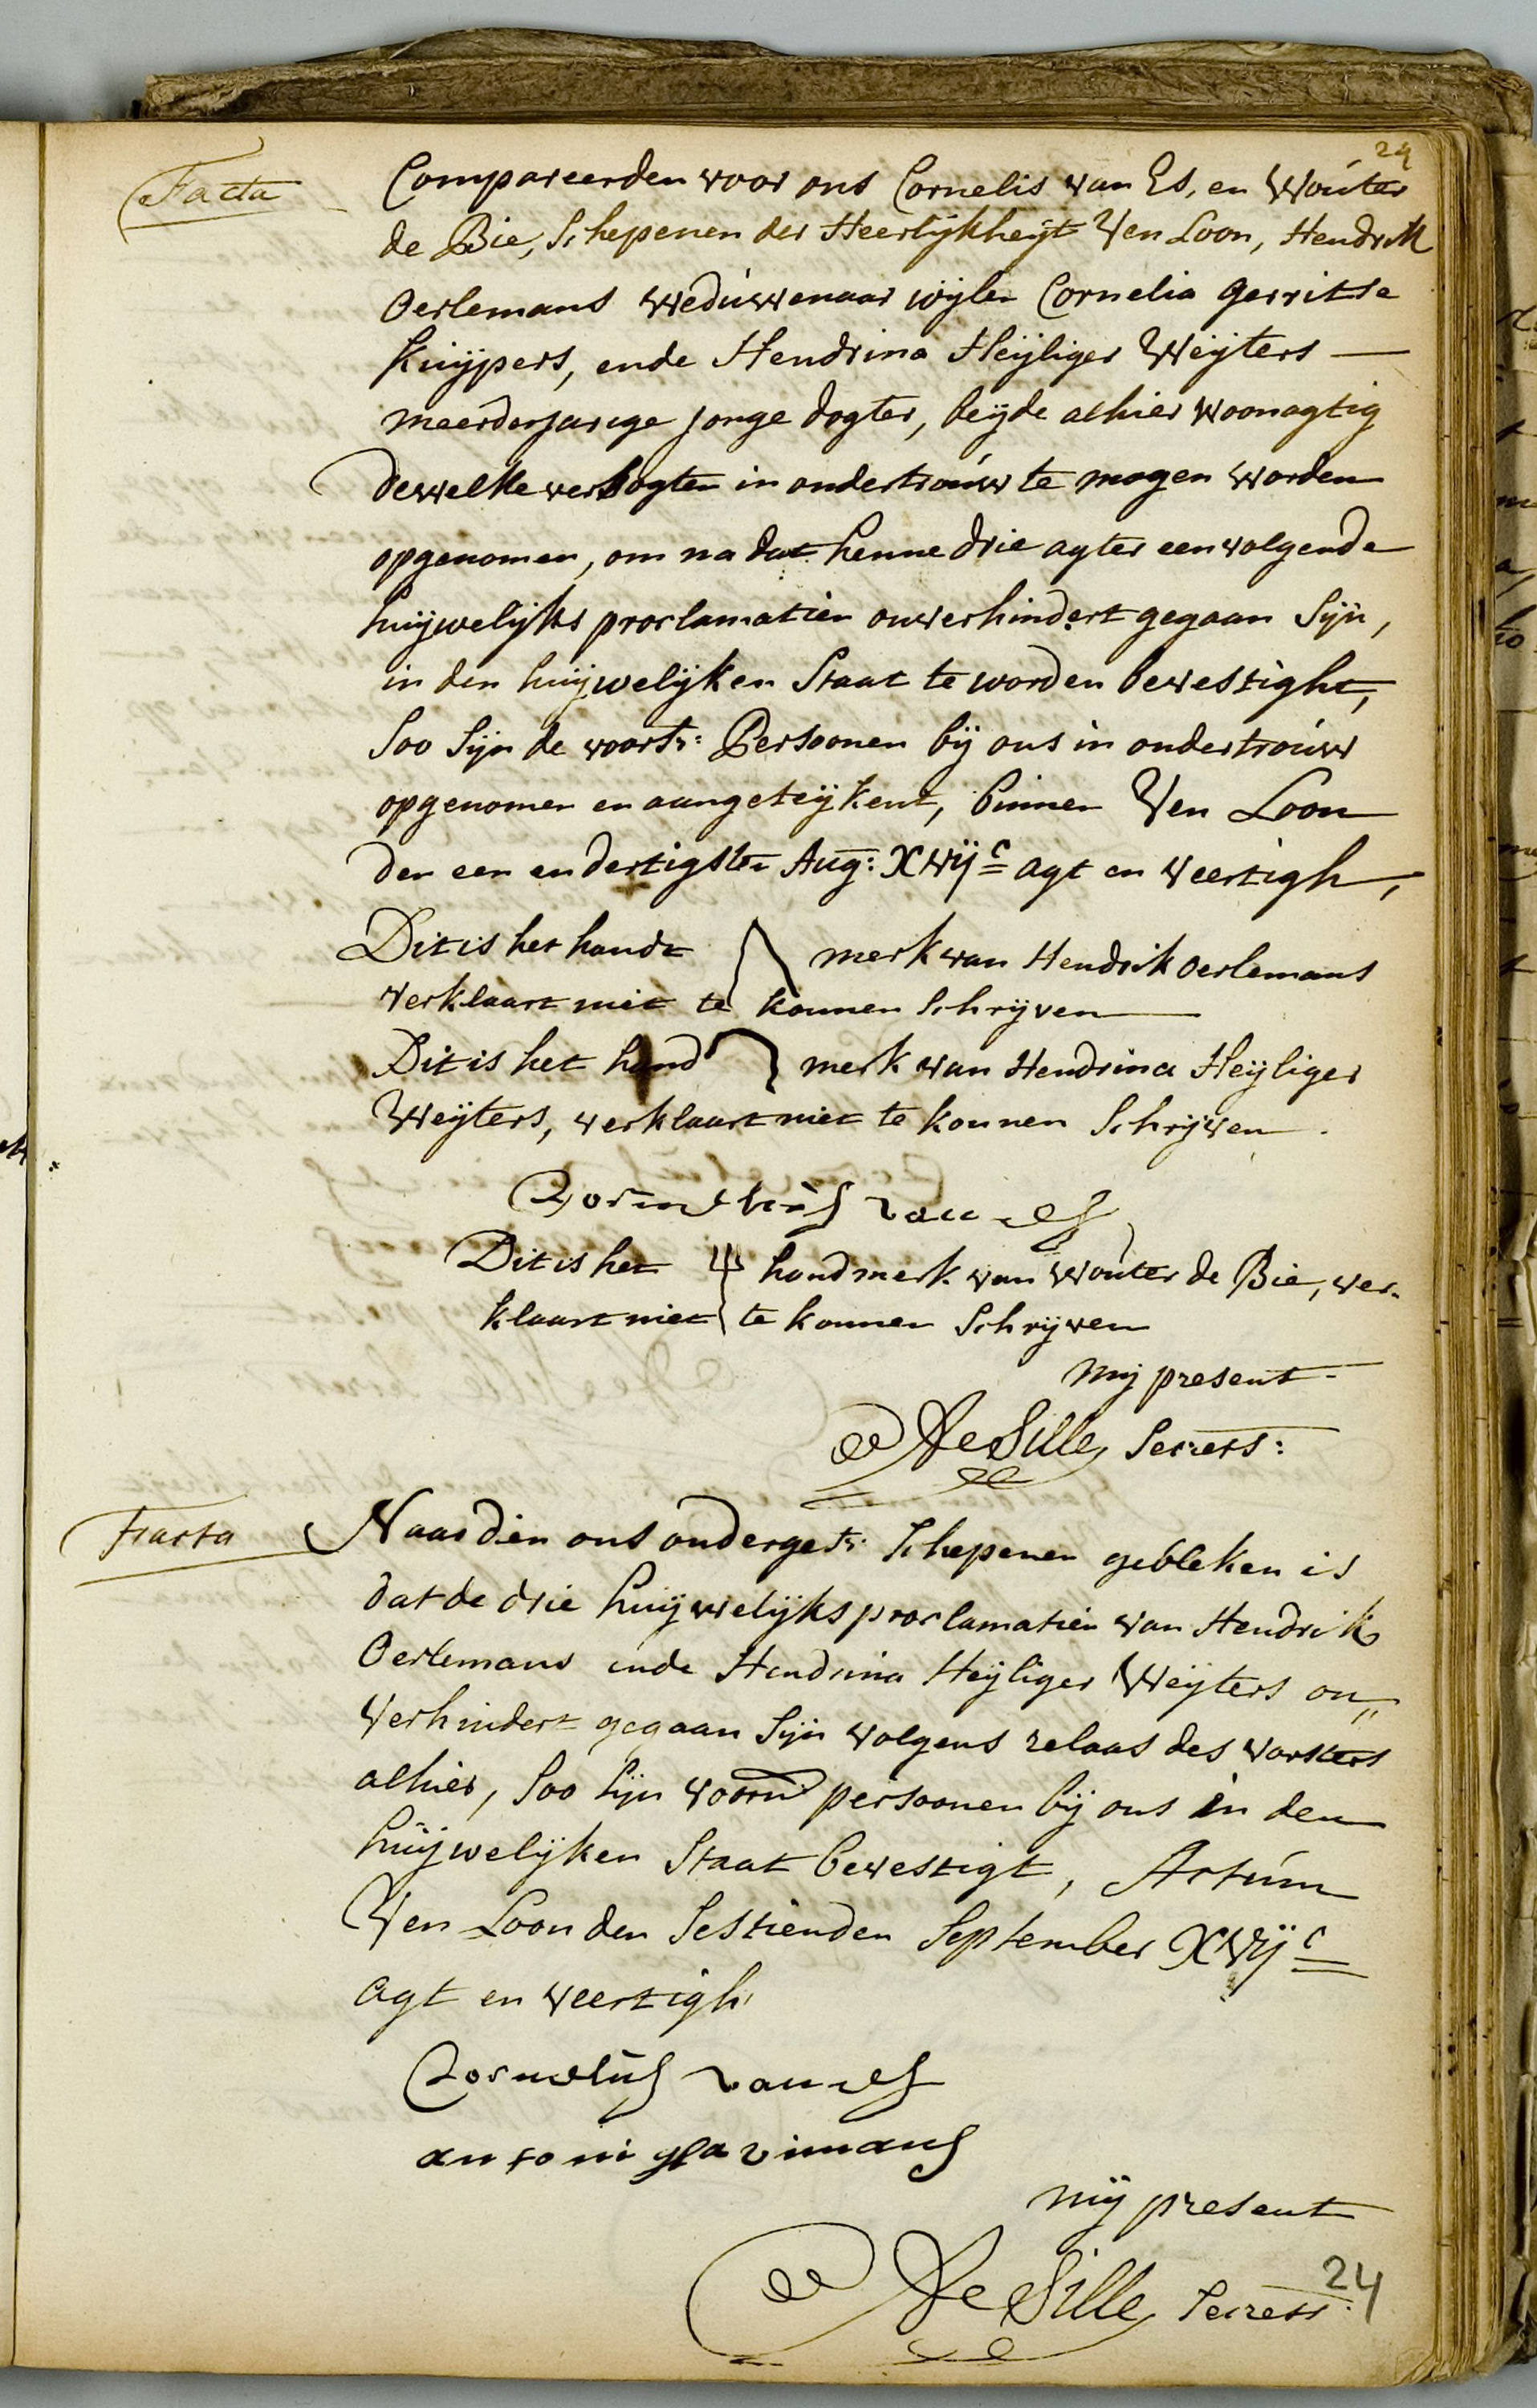 24
Facta
Compareerden voor ons Cornelis van Es, en Wouter
de Bie, Schepenen der Heerlijkheijt Ven Loon, Hendrik
Oerlemans weduwenaar wijlen Cornelia Gerritse
Kuijpers, ende Hendrina Heijliger Weijters —
meerderjarige jonge dogter, beijde alhier woonagtig
dewelke versogten in ondertrouw te mogen worden
opgenomen, om na dat henne drie agter een volgende
huijwelijks proclamatien onverhindert gegaan sijn,
in den huijwelijken Staat te worden bevestight,
Soo sijn de voors: Persoonen bij ons in ondertrouw
opgenomen en aangeteijkent, binnen Ven Loon
den een en dertigsten Aug: XVIJc agt en veertigh,
Dit is het handt merk van Hendrik Oerlemans
verklaart niet te konnen schrijven
Dit is het hand merk van Hendrina Heijliger
Weijters, verklaart niet te konnen schrijven.
Cornelius van es
Dit is het handmerk van Wouter de Bie, ver-
klaart niet te konnen schrijven
mij present
De Sille Secrets:
Facta
Naardien ons onderget: Schepenen gebleken is
dat de drie huijwelijks proclamatien van Hendrik
Oerlemans ende Hendrina Heijliger Weijters on„
verhindert gegaan sijn volgens relaas des vorsters
alhier, soo sijn voorn persoonen bij ons in den
huijwelijken Staat bevestigt, Actum
Ven Loon den Sestienden September XVIJc
agt en veertigh,
Cornelius van es
antoni
mij present
De Sille Secrets:
24